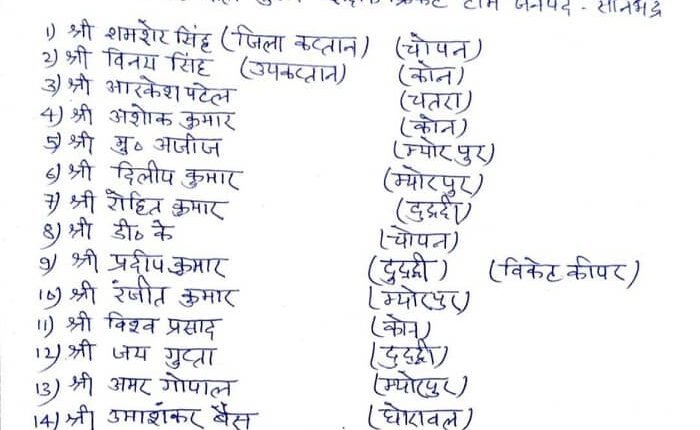 क्रिकेट टीम जनपद - सोनभद्र
1) श्री शमशेर सिंह (जिला कप्तान) (चोपन)
2) श्री विनय सिंह (उपकप्तान) (कोन)
3) श्री आरकेश पटेल (चतरा)
4) श्री अशोक कुमार (कोन)
5) श्री मु० अजीज (म्योरपुर)
6) श्री दिलीप कुमार (म्योरपुर)
7) श्री रोहित कुमार (दुद्धी)
8) श्री डी० के (चोपन)
9) श्री प्रदीप कुमार (दुद्धी) (विकेट कीपर)
10) श्री रंजीत कुमार (म्योरपुर)
11) श्री विश्व प्रसाद (कोन)
12) श्री जय गुप्ता (दुद्धी)
13) श्री अमर गोपाल (म्योरपुर)
14) श्री उमाशंकर बैस (घोरावल)